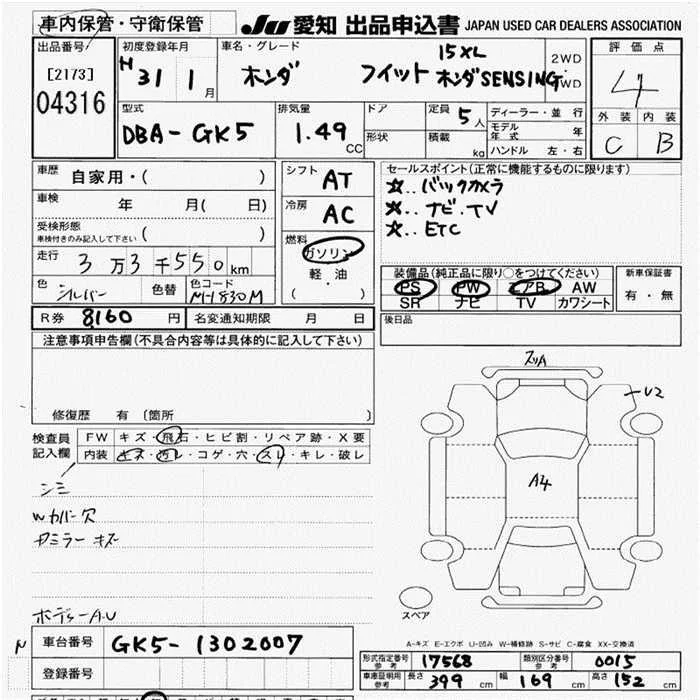 車内保管・守衛保管 JU 愛知 出品申込書 JAPAN USED CAR DEALERS ASSOCIATION
出品番号 [2173] 04316
初度登録年月 H 31 1月
車名・グレード ホンダ フィット 15XL ホンダSENSING 2WD WD
評価点 4
外装 内装
C B
型式 DBA-GK5
排気量 1.49 CC
ドア 形状
定員 5人 積載 kg
ディーラー・並行
モデル年式 年
ハンドル 左・右
車歴 自家用・( )
車検 年 月( 日)
受検形態 車検付きのみ記入して下さい ( )
走行 3万3千550km
色 シルバー 色替 色コード M-1830M
シフト AT
冷房 AC
燃料 ガソリン
軽・油
( )
セールスポイント(正常に機能するものに限ります)
☆..バックカメラ
☆..ナビ.TV
☆..ETC
装備品(純正品に限り○をつけてください)
PS PW エアB AW
SR ナビ TV カワシート
新車保証書
有・無
R券 8,160円 名変通知期限 月 日
後日品
注意事項申告欄(不具合内容等は具体的に記入して下さい)
修復歴 有 〔箇所 〕
検査員記入欄
FW キズ・飛石・ヒビ割・リペア跡・X要
内装 キズ・汚レ・コゲ・穴・スレ・キレ・破レ
シミ
Wカバー欠
ミラー キズ
ボディーA.U
スリA
U2
A4
スペア
A-キズ E-エクボ U-凹み W-補修跡 S-サビ C-腐食 XX-交換済
車台番号 GK5-1302007
登録番号
形式指定番号 参考 17568 類別区分番号 参考 0015
車庫証明用 参考 長さ 399cm 幅 169cm 高さ 152cm